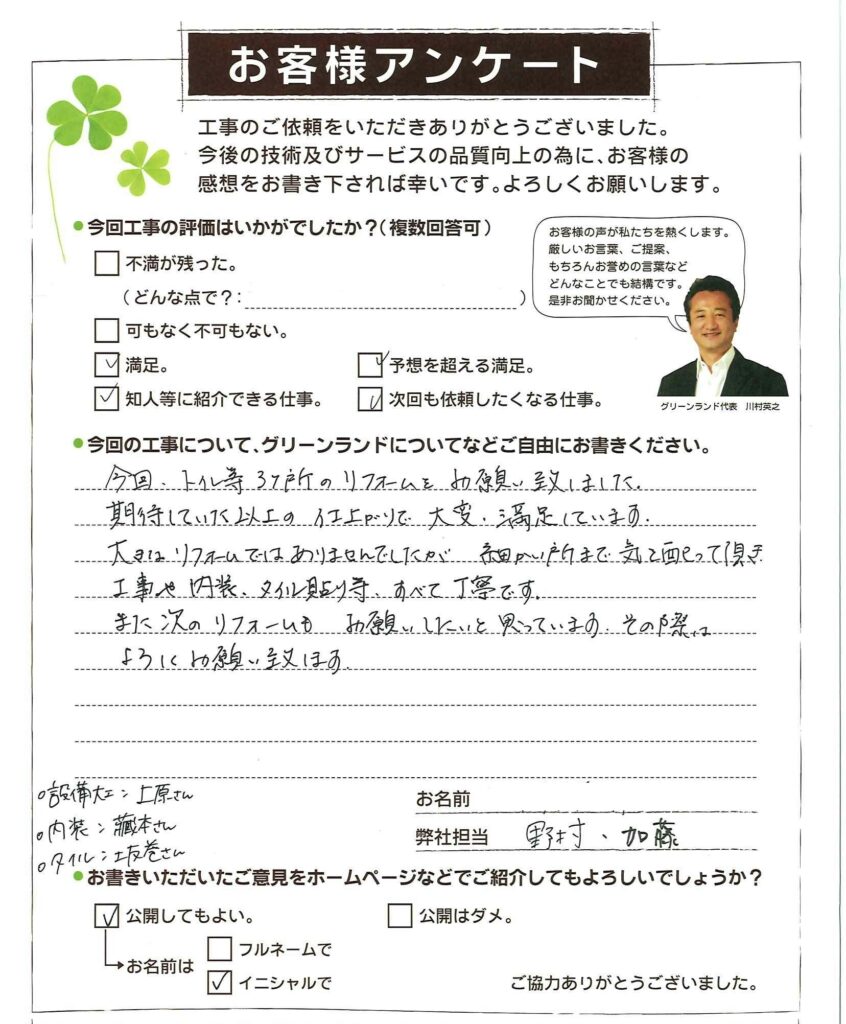 お客様アンケート
工事のご依頼をいただきありがとうございました。
今後の技術及びサービスの品質向上の為に、お客様の
感想をお書き下されば幸いです。よろしくお願いします。
今回工事の評価はいかがでしたか？（複数回答可）
お客様の声が私たちを熱くします。
厳しいお言葉、ご提案、
もちろんお誉めの言葉など
どんなことでも結構です。
是非お聞かせください。
不満が残った。
（どんな点で？：　）
可もなく不可もない。
満足。
予想を超える満足。
知人等に紹介できる仕事。
次回も依頼したくなる仕事。
グリーンランド代表　川村英之
今回の工事について、グリーンランドについてなどご自由にお書きください。
今回、トイレ等3ケ所のリフォームをお願い致しました。
期待していた以上の仕上がりで大変、満足しています。
大きなリフォームではありませんでしたが 細かい所まで気を配って頂き
工事や内装、タイル貼り等、すべて丁寧です。
また次のリフォームも お願いしたいと思っています。その際は
よろしくお願い致します。
設備大工：上原さん
内装：藏本さん
タイル：坂巻さん
お名前
弊社担当　野村、加藤
お書きいただいたご意見をホームページなどでご紹介してもよろしいでしょうか？
公開してもよい。
公開はダメ。
お名前は
フルネームで
イニシャルで
ご協力ありがとうございました。